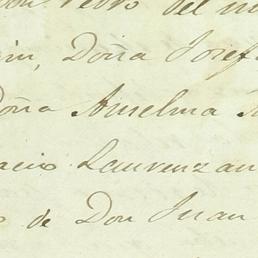 Don Pedro del
Doña Josef
Doña Anselma
Laurenzan
de Don Juan